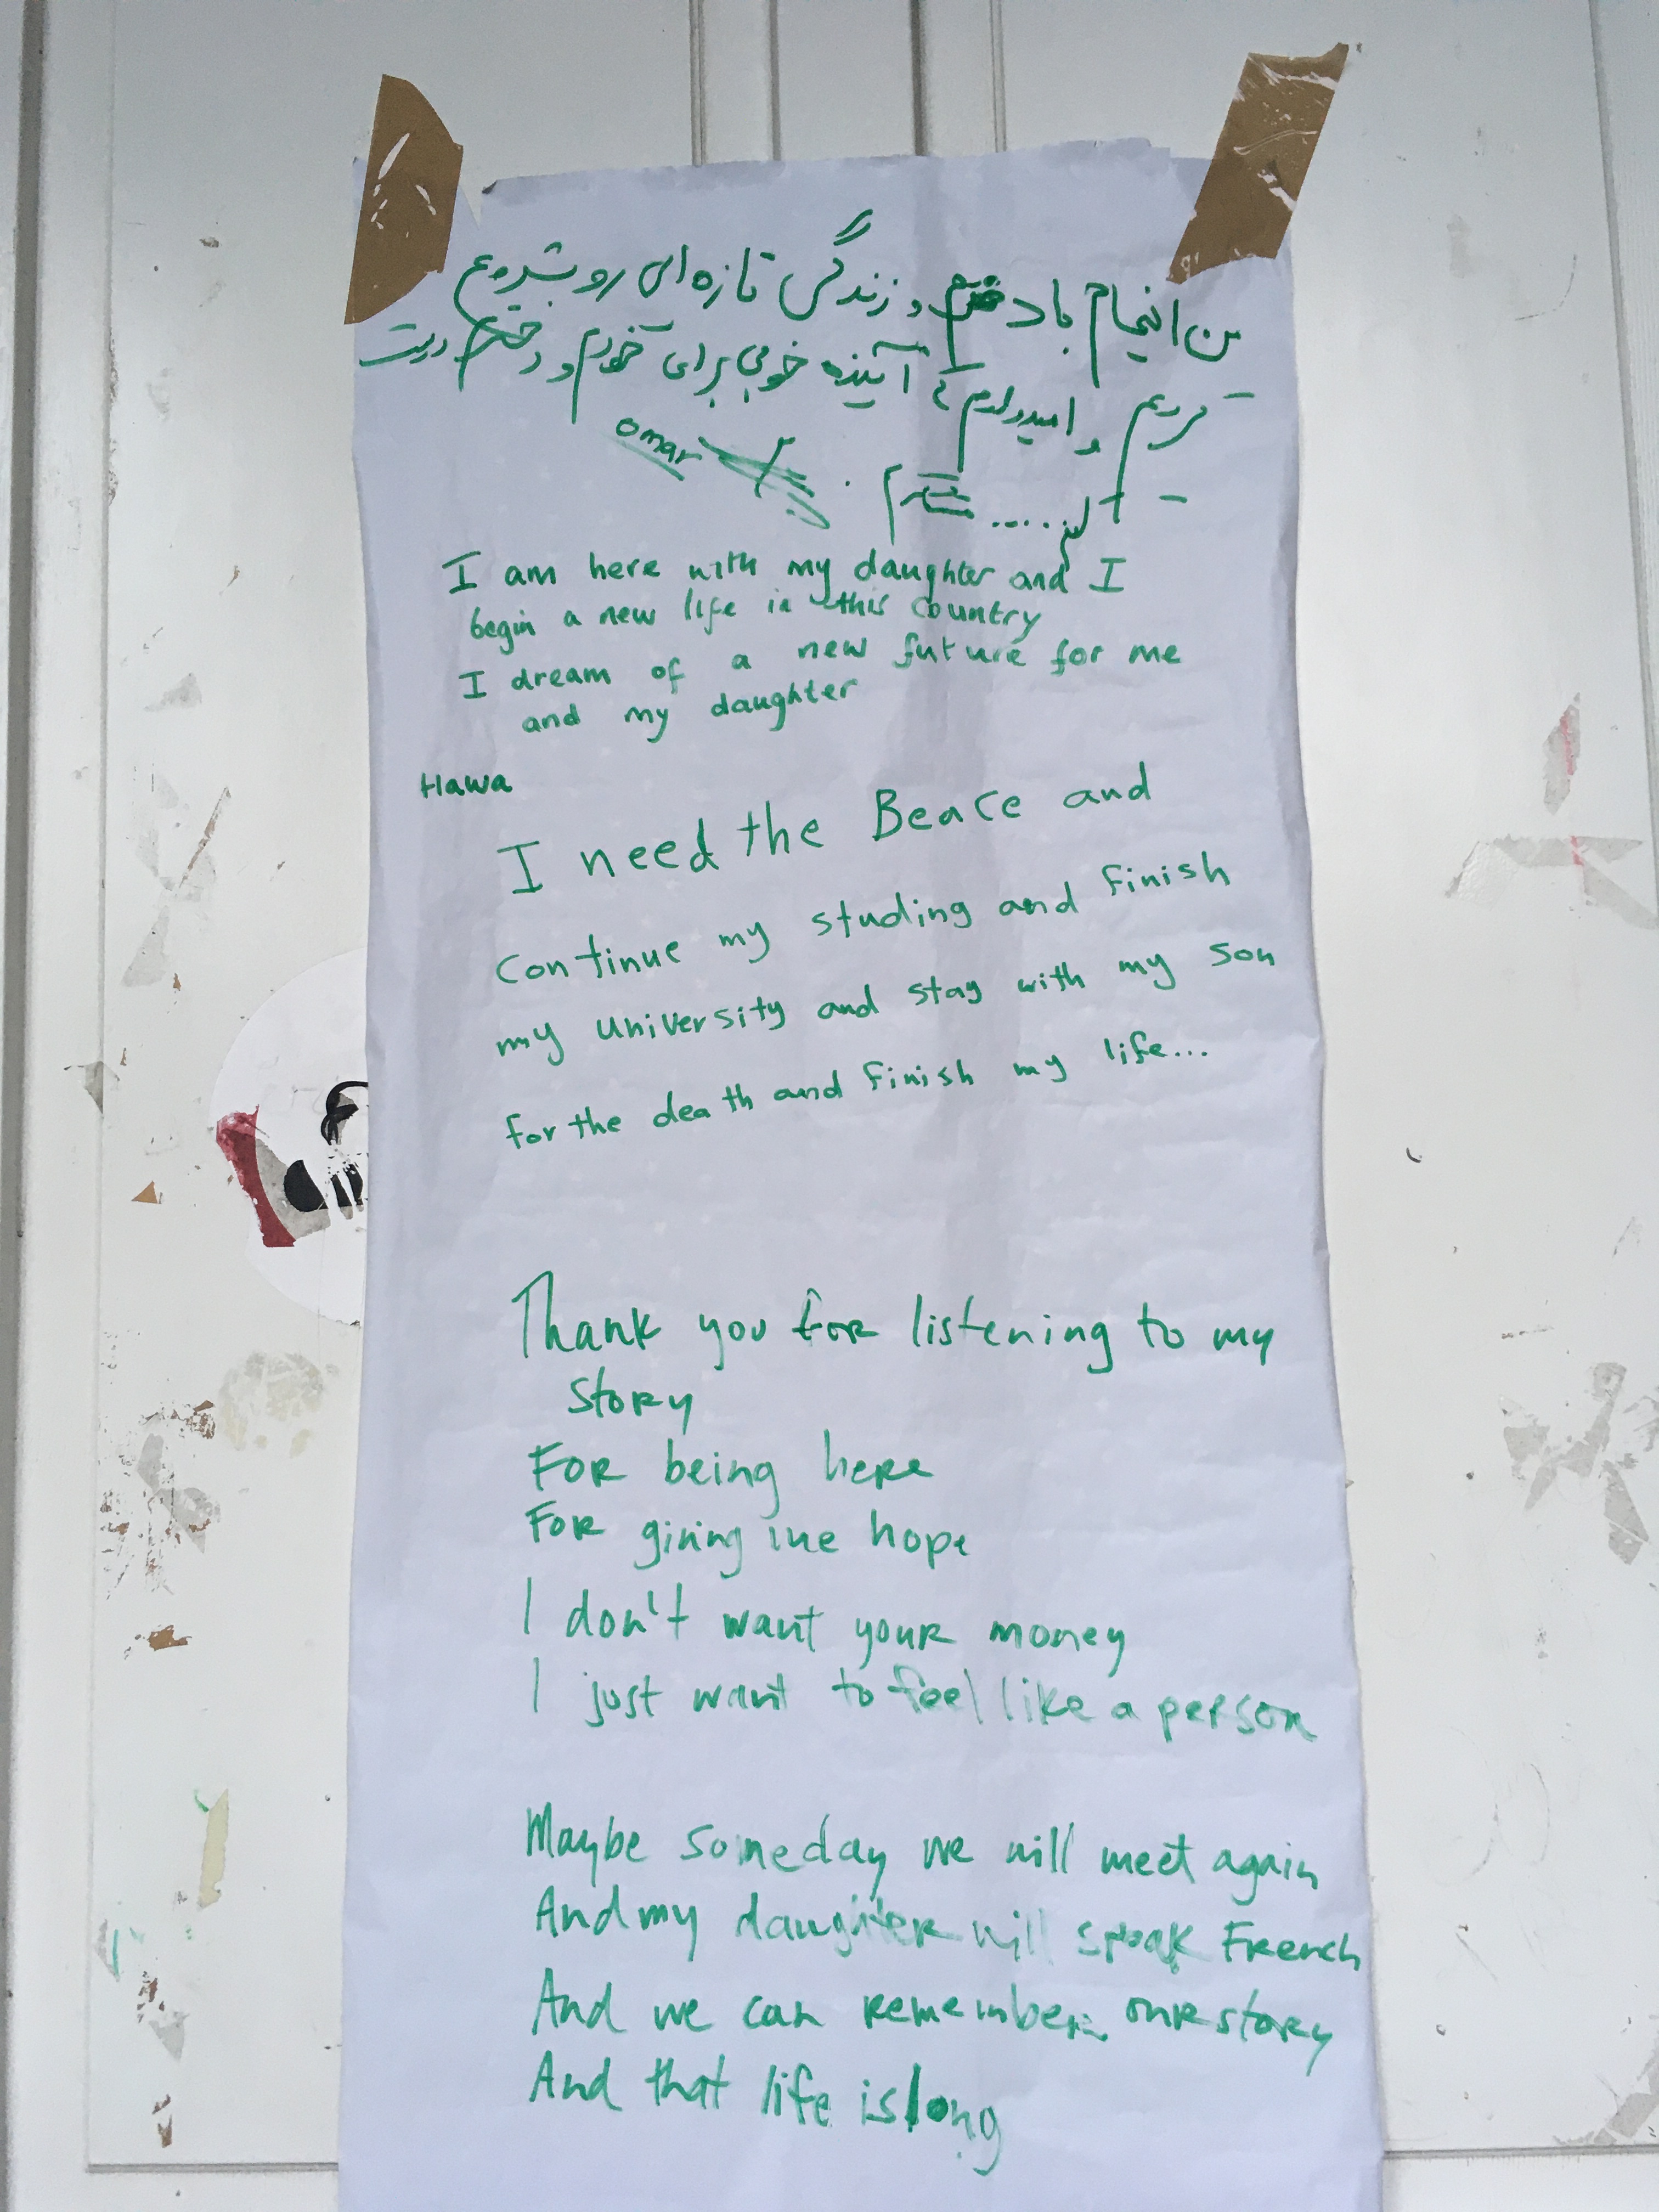 من اینجام با دخترم و زندگی تازه ای رو شروع
کردیم و امیدوارم که آینده خوبی برای خودم و دخترم درست
کنم ..... متشکرم .
omar
I am here with my daughter and I
begin a new life in this country
I dream of a new future for me
and my daughter
Hawa
I need the Beace and
continue my studing and finish
my university and stay with my son
for the death and finish my life...
Thank you for listening to my
story
For being here
For giving me hope
I don't want your money
I just want to feel like a person
Maybe someday we will meet again
And my daughter will speak French
And we can remember our story
And that life is long